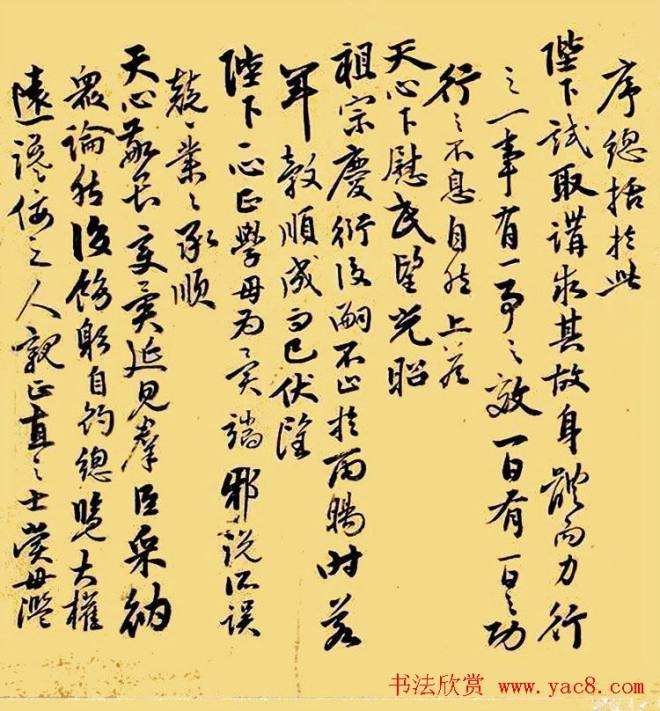 序總括於此
陛下試取講求其故身體而力行
之一事有一事之效一日有一日之功
行之不息自然上答
天心下慰民望光昭
祖宗慶衍後嗣不止於雨暘時若
年穀順成而已伏望
陛下一心正學毋為異端邪說所誤
兢兢業業承順
天心敬畏變異延見羣臣采納
眾論然後飭躬自約總覽大權
遠讒佞之人親正直之士賞毋濫
书法欣赏 www.yac8.com